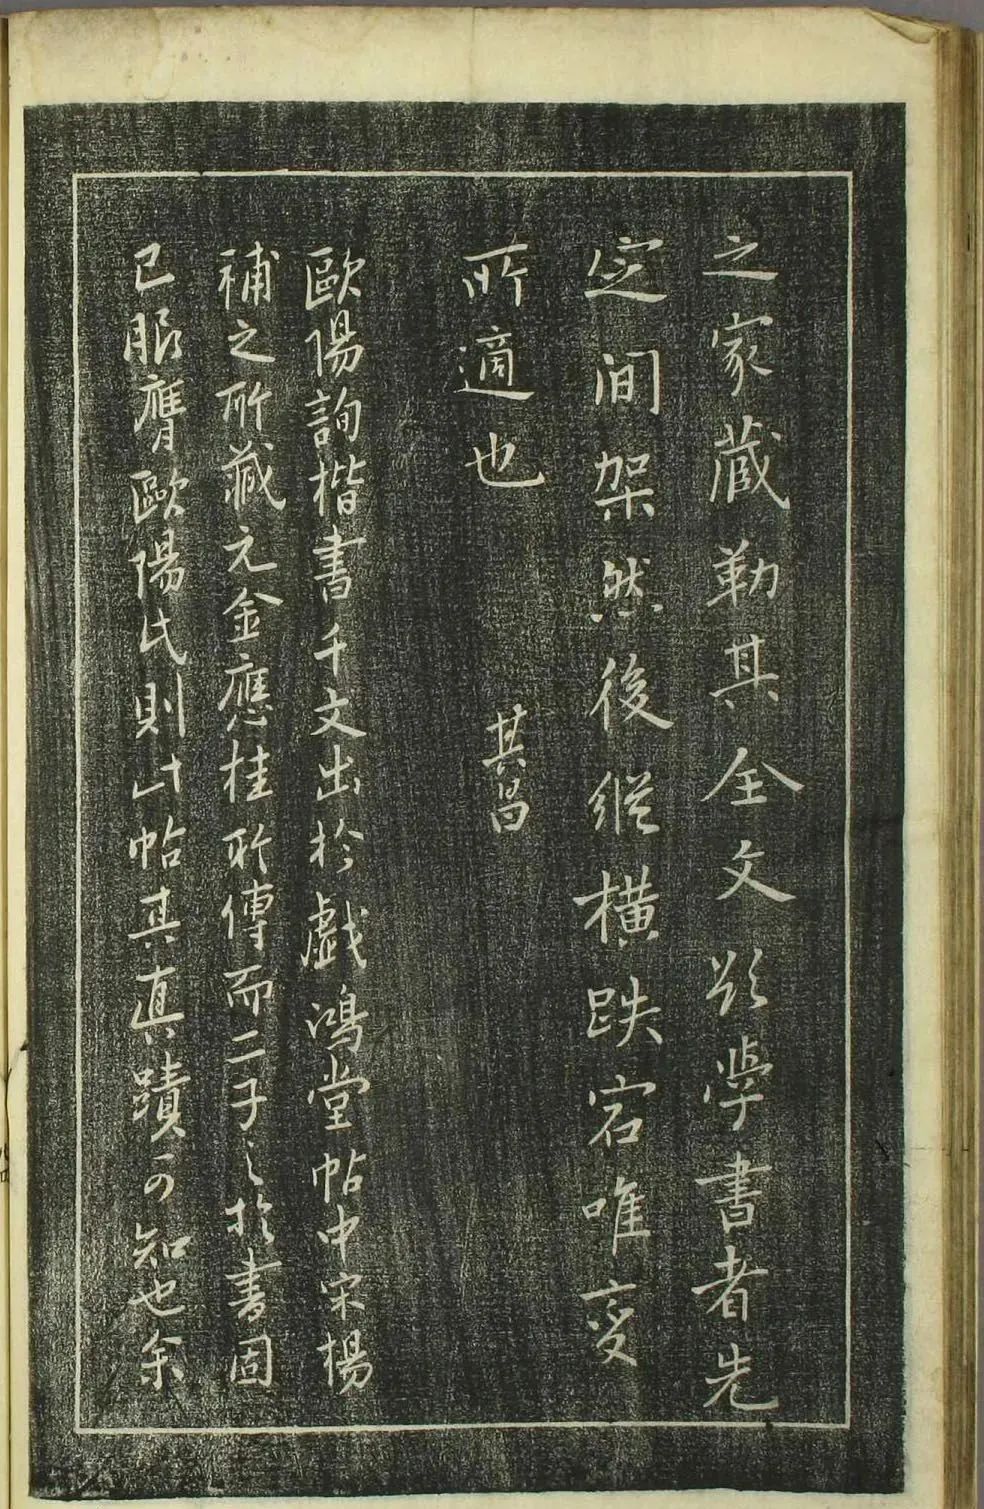 之家藏勒其全文欲學書者先
定間架然後縱橫跌宕唯變
所適也　其昌
歐陽詢楷書千文出於戲鴻堂帖中宋楊
補之所藏元金應桂所傳而二子之於書固
已服膺歐陽氏則此帖其真蹟可知也余